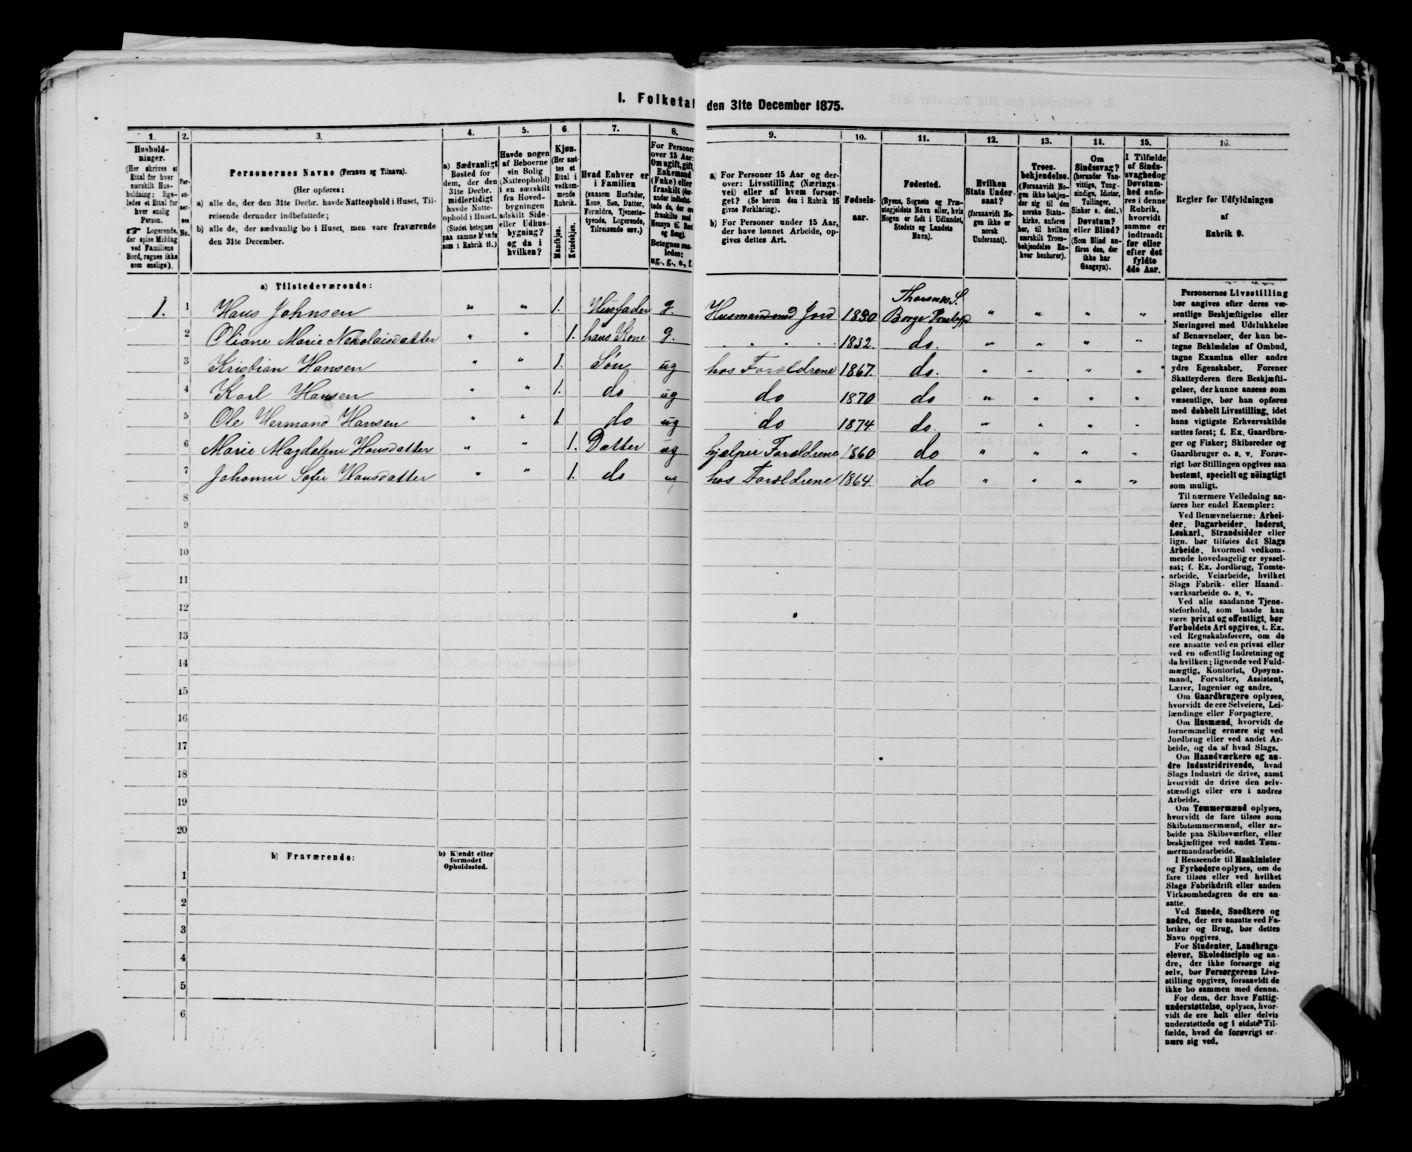 I. Folketal
den 31te December 1875.
1.
Hushold-
ninger.
(Her skrives et
Ettal for hver
særskilt Hus-
holdning; lige-
ledes et Ettal for
hver enslig
Person.
☞ Logerende,
der spise Middag
ved Familiens
Bord, regnes ikke
som enslige).
2.
Per-
so-
ner-
nes
No.
3.
Personernes Navne (Fornavn og Tilnavn).
(Her opføres:
a) alle de, der den 31te Decbr. havde Natteophold i Huset, Til-
reisende derunder indbefattede;
b) alle de, der sædvanlig bo i Huset, men vare fraværende
den 31te December.
4.
a) Sædvanligt
Bosted for
dem, der den
31te Decbr.
midlertidigt
havde Natte-
ophold i Huset.
(Stedet betegnes
paa samme Maade
som i Rubrik 11.)
5.
Havde nogen
af Beboerne
sin Bolig
(Natteophold)
i en særskilt
fra Hoved-
bygningen
adskilt Side-
eller Udhus-
bygning?
og da i
hvilken?
6.
Kjøn.
(Her sæt-
tes et
Ettal i
vedkom-
mende
Rubrik.
Mandkjøn.
Kvindekjøn.
7.
Hvad Enhver er
i Familien
(saasom Husfader,
Kone, Søn, Datter,
Forældre, Tjeneste-
tyende, Logerende,
Tilreisende osv.)
8.
For Personer
over 15 Aar:
Om ugift, gift,
Enkemand
(Enke) eller
fraskilt
Betegnes saa-
ledes:
ug., g., e., f.
9.
a) For Personer 15 Aar og der-
over: Livsstilling (Nærings-
vei) eller af hvem forsør-
get? (Se herom den i Rubrik 16
givne Forklaring).
b) For Personer under 15 Aar,
der have lønnet Arbeide, op-
gives dettes Art.
10.
Fødsels-
aar.
11.
Fødested.
(Byens, Sognets og Præ-
stegjeldets Navn eller, hvis
Nogen er født i Udlandet,
Stedets og Landets
Navn).
12.
Hvilken
Stats Under-
saat?
(forsaavidt No-
gen ikke er
norsk
Undersaat).
13.
Troes-
bekjendelse.
(Forsaavidt No-
gen ikke bekjen-
der sig til den
norske Stats-
kirke, anføres
her, til hvilken
særskilt Troes-
bekjendelse En-
hver henhører).
14.
Om
Sindssvag?
(herunder Van-
vittige, Tung-
sindige, Idioter,
Tullinger,
Sinker o. desl.)
Døvstum?
eller Blind?
(Som Blind an-
føres den, der
ikke har
Gangsyn).
15.
I Tilfælde
af Sinds-
svaghed og
Døvstum-
hed anfø-
res i denne
Rubrik,
hvorvidt
samme er
indtraadt
før eller
efter det
fyldte
4de Aar.
16.
Regler for Udfyldningen
af
Rubrik 9.
a) Tilstedeværende:
1. 1 Hans Johnsen " " 1. Husfader g. Husmand med Jord 1830 Thorsnes S. Borge Præstegj " " " "
2 Oliane Marie Nikolaisdatter " 1. hans Kone g. . . . . . 1832. do. " " " "
3 Kristian Hansen " " 1. Søn ug hos Forældrene 1867. do. " " " "
4 Karl Hansen " " 1. do ug do 1870 do " " " "
5 Ole Hermand Hansen " " 1 do ug do 1874 do. " " " "
6 Marie Magdalene Hansdatter " " 1. Datter ug hjælper Forældrene 1860 do " " " "
7 Johanne Sofie Hansdatter " " 1. do ug hos Forældrene 1864. do " " " "
8
9
10
11
12
13
14
15
16
17
18
19
20
b) Fraværende:
b) Kjendt eller
formodet
Opholdssted.
1
2
3
4
5
6
Personernes Livsstilling
bør angives efter deres væ-
sentlige Beskjæftigelse eller
Næringsvei med Udelukkelse
af Benævnelser, der kun be-
tegne Beklædelse af Ombud,
tagne Examina eller andre
ydre Egenskaber. Forener
Skatteyderen flere Beskjæfti-
gelser, der kunne ansees som
væsentlige, bør han opføres
med dobbelt Livsstilling, idet
hans vigtigste Erhvervskilde
sættes først; f. Ex. Gaardbru-
ger og Fisker; Skibsreder og
Gaardbruger o. s. v. Forøv-
rigt bør Stillingen opgives saa
bestemt, specielt og nöiagtigt
som muligt.
Til nærmere Veiledning an-
føres her endel Exempler:
Ved Benævnelserne: Arbei-
der, Dagarbeider, Inderst,
Løskarl, Strandsidder eller
lign. bør tilføies det Slags
Arbeide, hvormed vedkom-
mende hovedsagelig er syssel-
sat; f. Ex. Jordbrug, Tomte-
arbeide, Veiarbeide, hvilket
Slags Fabrik- eller Haand-
værksarbeide o. s. v.
Ved alle saadanne Tjene-
steforhold, som baade kan
være privat og offentligt, bør
Forholdets Art opgives, t. Ex.
ved Regnskabsførere, om de
ere ansatte ved en privat eller
ved en offentlig Indretning og
da hvilken; lignende ved Fuld-
mægtig, Kontorist, Opsyns-
mand, Forvalter, Assistent,
Lærer, Ingeniør og andre.
Om Gaardbrugere oplyses,
hvorvidt de ere Selveiere, Lei-
lændinge eller Forpagtere.
Om Husmænd, hvorvidt de
fornemmelig ernære sig ved
Jordbrug eller ved andet Ar-
beide, og da af hvad Slags.
Om Haandværkere og an-
dre Industridrivende, hvad
Slags Industri de drive, samt
hvorvidt de drive den selv-
stændigt eller ere i andres
Arbeide.
Om Tømmermænd oplyses,
hvorvidt de fare tilsøs som
Skibstømmermænd, eller ar-
beide paa Skibsværfter, eller
beskjæftiges ved andet Tøm-
mermandsarbeide.
I Henseende til Maskinister
og Fyrbødere oplyses, om de
fare tilsøs eller ved hvilket
Slags Fabrikdrift eller anden
Virksomhedsgren de ere an-
satte.
Ved Smede, Snedkere og
andre, der ere ansatte ved Fa-
briker og Brug, bør dettes
Navn opgives.
For Studenter, Landbrugs-
elever, Skoledisciple og an-
dre, der ikke forsørge sig
selv, bør Forsørgerens Livs-
stilling opgives, forsaavidt de
ikke bo sammen med denne.
For dem, der have Fattig-
understøttelse, oplyses, hvor-
vidt de ere helt eller delvis
understøttede og i sidste Til-
fælde, hvad de forøvrigt er-
nære sig ved.